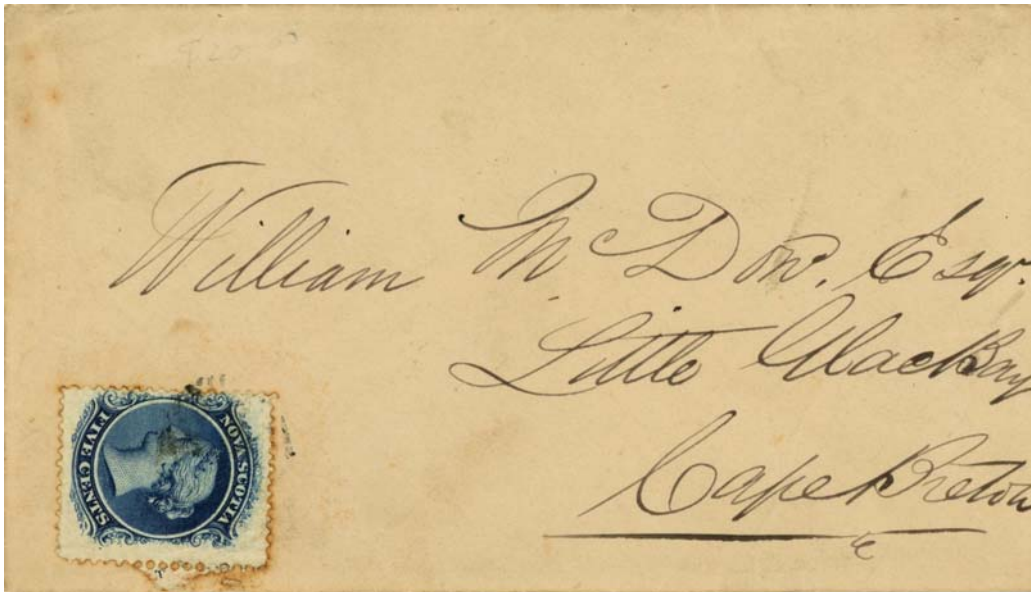 William McDon^d. Esq^r.
Little Glace Bay
Cape Breton
NOVA SCOTIA
FIVE CENTS